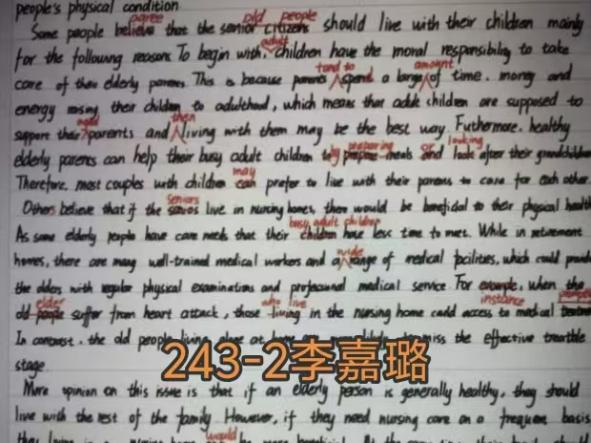 people's physical condition
agree old people
Some people believe that the senior citizens should live with their children mainly
adult
for the following reasons To begin with, children have the moral responsibility to take
tend to amount
care of their elderly parents This is because parents spend a large of time. money and
energy rising their children to adulthood, which means that adult children are supposed to
aged then
support their parents and living with them may be the best way. Futhermore. healthy
preparing or looking
elderly parents can help their busy adult children by prepare meals and look after their grandchildren
may
Therefore, most couples with children can prefer to live with their parents to care for each other.
seniors
Others believe that if the live in nursing homes, there would be beneficial to their physical health
busy adult children
As some elderly people have care needs that their children have less time to meet. While in retirement
wide
homes, there are many well-trained medical workers and a range of medical facilities, which could provide
the olders with regular physical examinations and professional medical service. For example, when the
elder who live instance
old people suffer from heart attack, those living in the nursing home could access to medical treatment
In contrast, the old people living alone at home miss the effective treatble
243-2李嘉璐
stage.
More opinion on this issue is that if an elderly person is generally healthy, they should
live with the rest of the family However, if they need nursing care on a frequent basis
would